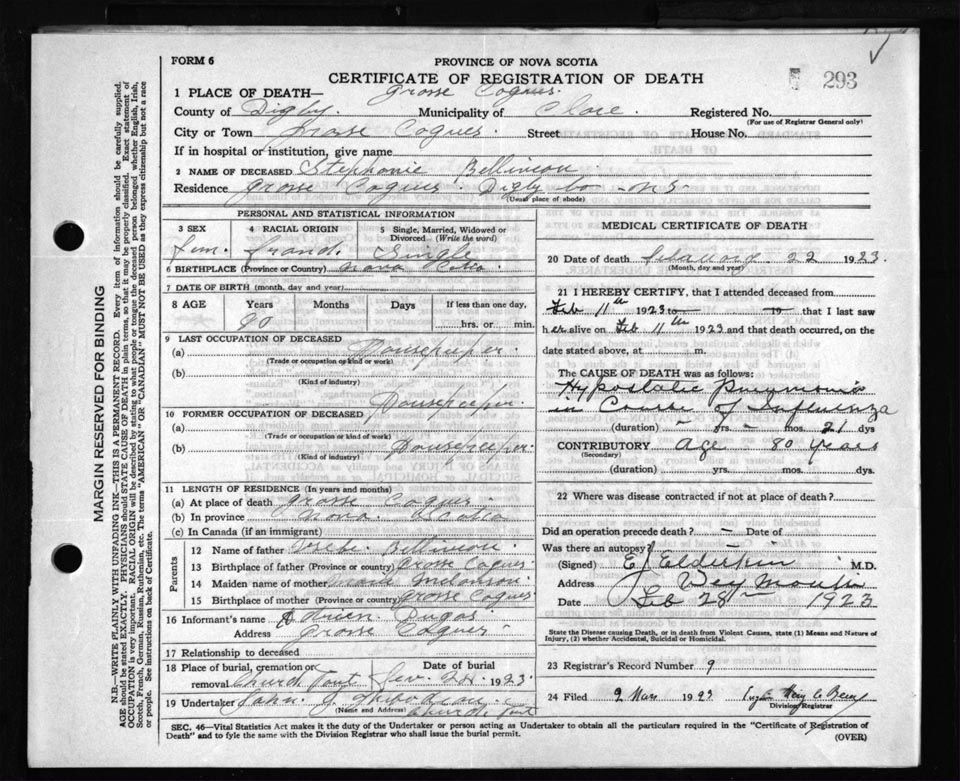 FORM 6
PROVINCE OF NOVA SCOTIA
CERTIFICATE OF REGISTRATION OF DEATH
293
1 PLACE OF DEATH— Grosse Coques.
County of Digby. Municipality of Clare. Registered No.
(For use of Registrar General only)
City or Town Grosse Coques. Street House No.
If in hospital or institution, give name
2 NAME OF DECEASED Stephanie Belliveau
Residence Grosse Coques Digby Co N S
(Usual place of abode)
PERSONAL AND STATISTICAL INFORMATION
3 SEX 4 RACIAL ORIGIN 5 Single, Married, Widowed or Divorced (Write the word)
Fem. Single
6 BIRTHPLACE (Province or Country) Nova Scotia
7 DATE OF BIRTH (month, day, and year)
8 AGE Years Months Days If less than one day,
hrs. or min.
9 LAST OCCUPATION OF DECEASED
(a) Housekeeper.
(Trade or occupation or kind or work)
(b)
(Kind of industry)
10 FORMER OCCUPATION OF DECEASED
(a) Housekeeper.
(Trade or occupation or kind of work)
(b) Housekeeper.
(Kind of industry)
11 LENGTH OF RESIDENCE (In years and months)
(a) At place of death Grosse Coques
(b) In province Nova Scotia
(c) In Canada (if an immigrant)
Parents
12 Name of father Belliveau.
13 Birthplace of father (Province or Country) Grosse Coques
14 Maiden name of mother Marie Melanson
15 Birthplace of mother (Province or country) Grosse Coques
16 Informant's name
Address Grosse Coques
17 Relationship to deceased
18 Place of burial, cremation or removal Church Point Date of burial Fev. 24. 1923.
19 Undertaker John J. Thibodeau
(Name and Address) Church Point
MEDICAL CERTIFICATE OF DEATH
20 Date of death 22 1923.
(Month, day and year)
21 I HEREBY CERTIFY, that I attended deceased from
Feb 11th 1923 to 19 that I last saw
her alive on Feb 11th 1923 and that death occurred, on the
date stated above, at m.
The CAUSE OF DEATH was as follows:
Hypostatic Pneumonia
in Course of Influenza
(duration) yrs. mos. 21 dys
CONTRIBUTORY Age 80 years
(Secondary)
(duration) yrs. mos. dys.
22 Where was disease contracted if not at place of death?
Did an operation precede death? Date of
Was there an autopsy?
(Signed) E. J. Elderkin M.D.
Address Weymouth
Date Feb 28th 1923
State the Disease causing Death, or in death from Violent Causes, state (1) Means and Nature of Injury, (2) whether Accidental, Suicidal or Homicidal.
23 Registrar's Record Number 9
24 Filed 9 Mars 1923
Division Registrar
SEC. 46—Vital Statistics Act makes it the duty of the Undertaker or person acting as Undertaker to obtain all the particulars required in the "Certificate of Registration of
Death" and to fyle the same with the Division Registrar who shall issue the burial permit.
(OVER)
MARGIN RESERVED FOR BINDING
N.B.—WRITE PLAINLY WITH UNFADING INK—THIS IS A PERMANENT RECORD. Every item of information should be carefully supplied.
AGE should be stated EXACTLY. PHYSICIANS should STATE CAUSE OF DEATH in plain terms, so that it may be properly classified. Exact statement of
OCCUPATION is very important. RACIAL ORIGIN will be described by stating to what people or tongue the deceased person belonged whether English, Irish,
Scotch, French, German, Russian, Ruthenian, etc. The terms "AMERICAN" OR "CANADIAN" MUST NOT BE USED as they express citizenship but not a race
or people. See instructions on back of Certificate.